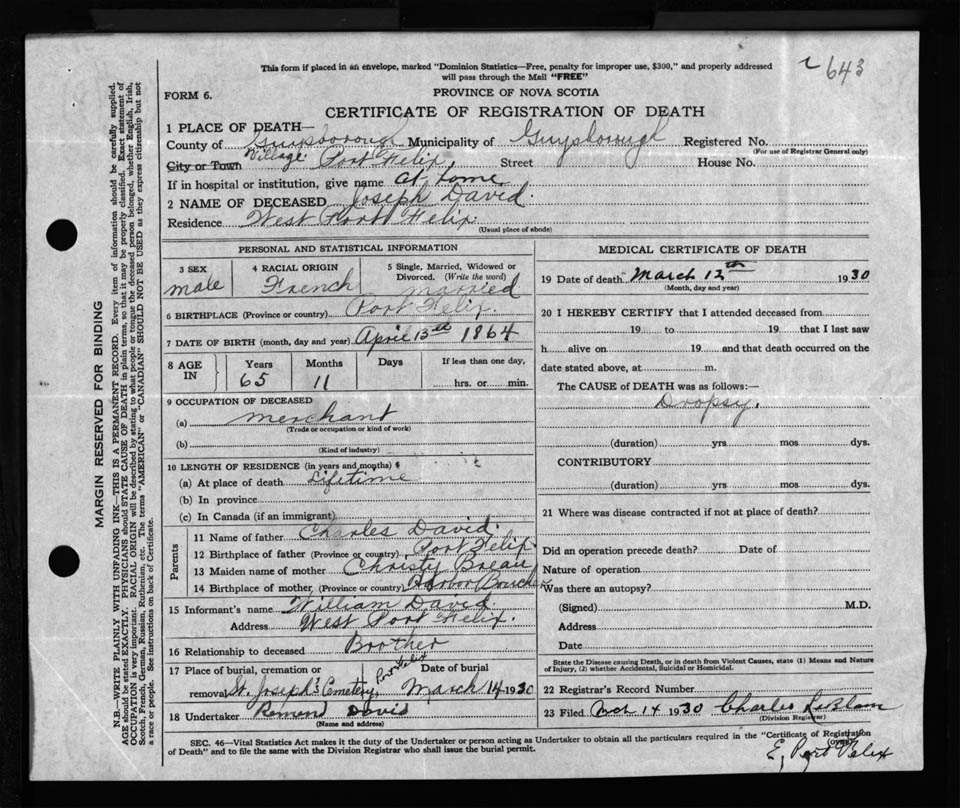 This form if placed in an envelope, marked "Dominion Statistics—Free, penalty for improper use, $300," and properly addressed
will pass through the Mail "FREE"
643
FORM 6.
PROVINCE OF NOVA SCOTIA
CERTIFICATE OF REGISTRATION OF DEATH
1 PLACE OF DEATH—
County of Guysborough Municipality of Guysborough Registered No.
(For use of Registrar General only)
City or Town Village: Port Felix, Street House No.
If in hospital or institution, give name at home
2 NAME OF DECEASED Joseph David.
Residence West Port Felix.
(Usual place of abode)
PERSONAL AND STATISTICAL INFORMATION
3 SEX 4 RACIAL ORIGIN 5 Single, Married, Widowed or
Divorced. (Write the word)
male French married
6 BIRTHPLACE (Province or country) Port Felix.
7 DATE OF BIRTH (month, day and year) April 13th 1864
8 AGE IN Years Months Days If less than one day,
65 11 hrs. or min.
9 OCCUPATION OF DECEASED
(a) merchant
(Trade or occupation or kind of work)
(b)
(Kind of industry)
10 LENGTH OF RESIDENCE (in years and months)
(a) At place of death Lifetime
(b) In province
(c) In Canada (if an immigrant)
Parents
11 Name of father Charles David.
12 Birthplace of father (Province or country) Port Felix.
13 Maiden name of mother Christy Breau
14 Birthplace of mother (Province or country) Harbor Bouche
15 Informant's name William David.
Address West Port Felix.
16 Relationship to deceased Brother
17 Place of burial, cremation or Date of burial
removal St. Joseph's Cemetery, Port Felix March 14 1930
18 Undertaker David
(Name and address)
MEDICAL CERTIFICATE OF DEATH
19 Date of death March 12th 1930
(Month, day and year)
20 I HEREBY CERTIFY that I attended deceased from
19 to 19 that I last saw
h alive on 19 and that death occurred on the
date stated above, at m.
The CAUSE of DEATH was as follows:—
Dropsy.
(duration) yrs mos dys.
CONTRIBUTORY
(duration) yrs mos dys.
21 Where was disease contracted if not at place of death?
Did an operation precede death? Date of
Nature of operation
Was there an autopsy?
(Signed) M.D.
Address
Date
State the Disease causing Death, or in death from Violent Causes, state (1) Means and Nature
of Injury, (2) whether Accidental, Suicidal or Homicidal.
22 Registrar's Record Number
23 Filed Mch 14 1930 Charles LeBlanc
(Division Registrar)
SEC. 46—Vital Statistics Act makes it the duty of the Undertaker or person acting as Undertaker to obtain all the particulars required in the "Certificate of Registration
of Death" and to file the same with the Division Registrar who shall issue the burial permit.
E, Port Felix
MARGIN RESERVED FOR BINDING
N.B. WRITE PLAINLY WITH UNFADING INK—THIS IS A PERMANENT RECORD. Every item of information should be carefully supplied.
AGE should be stated EXACTLY. PHYSICIANS should STATE CAUSE OF DEATH in plain terms, so that it may be properly classified. Exact statement of
OCCUPATION is very important. RACIAL ORIGIN will be described by stating to what people or tongue the deceased person belonged, whether English, Irish,
Scotch, French, German, Russian, Ruthenian, etc. The terms "AMERICAN" or "CANADIAN" SHOULD NOT BE USED as they express citizenship but not
a race or people. See instructions on back of Certificate.